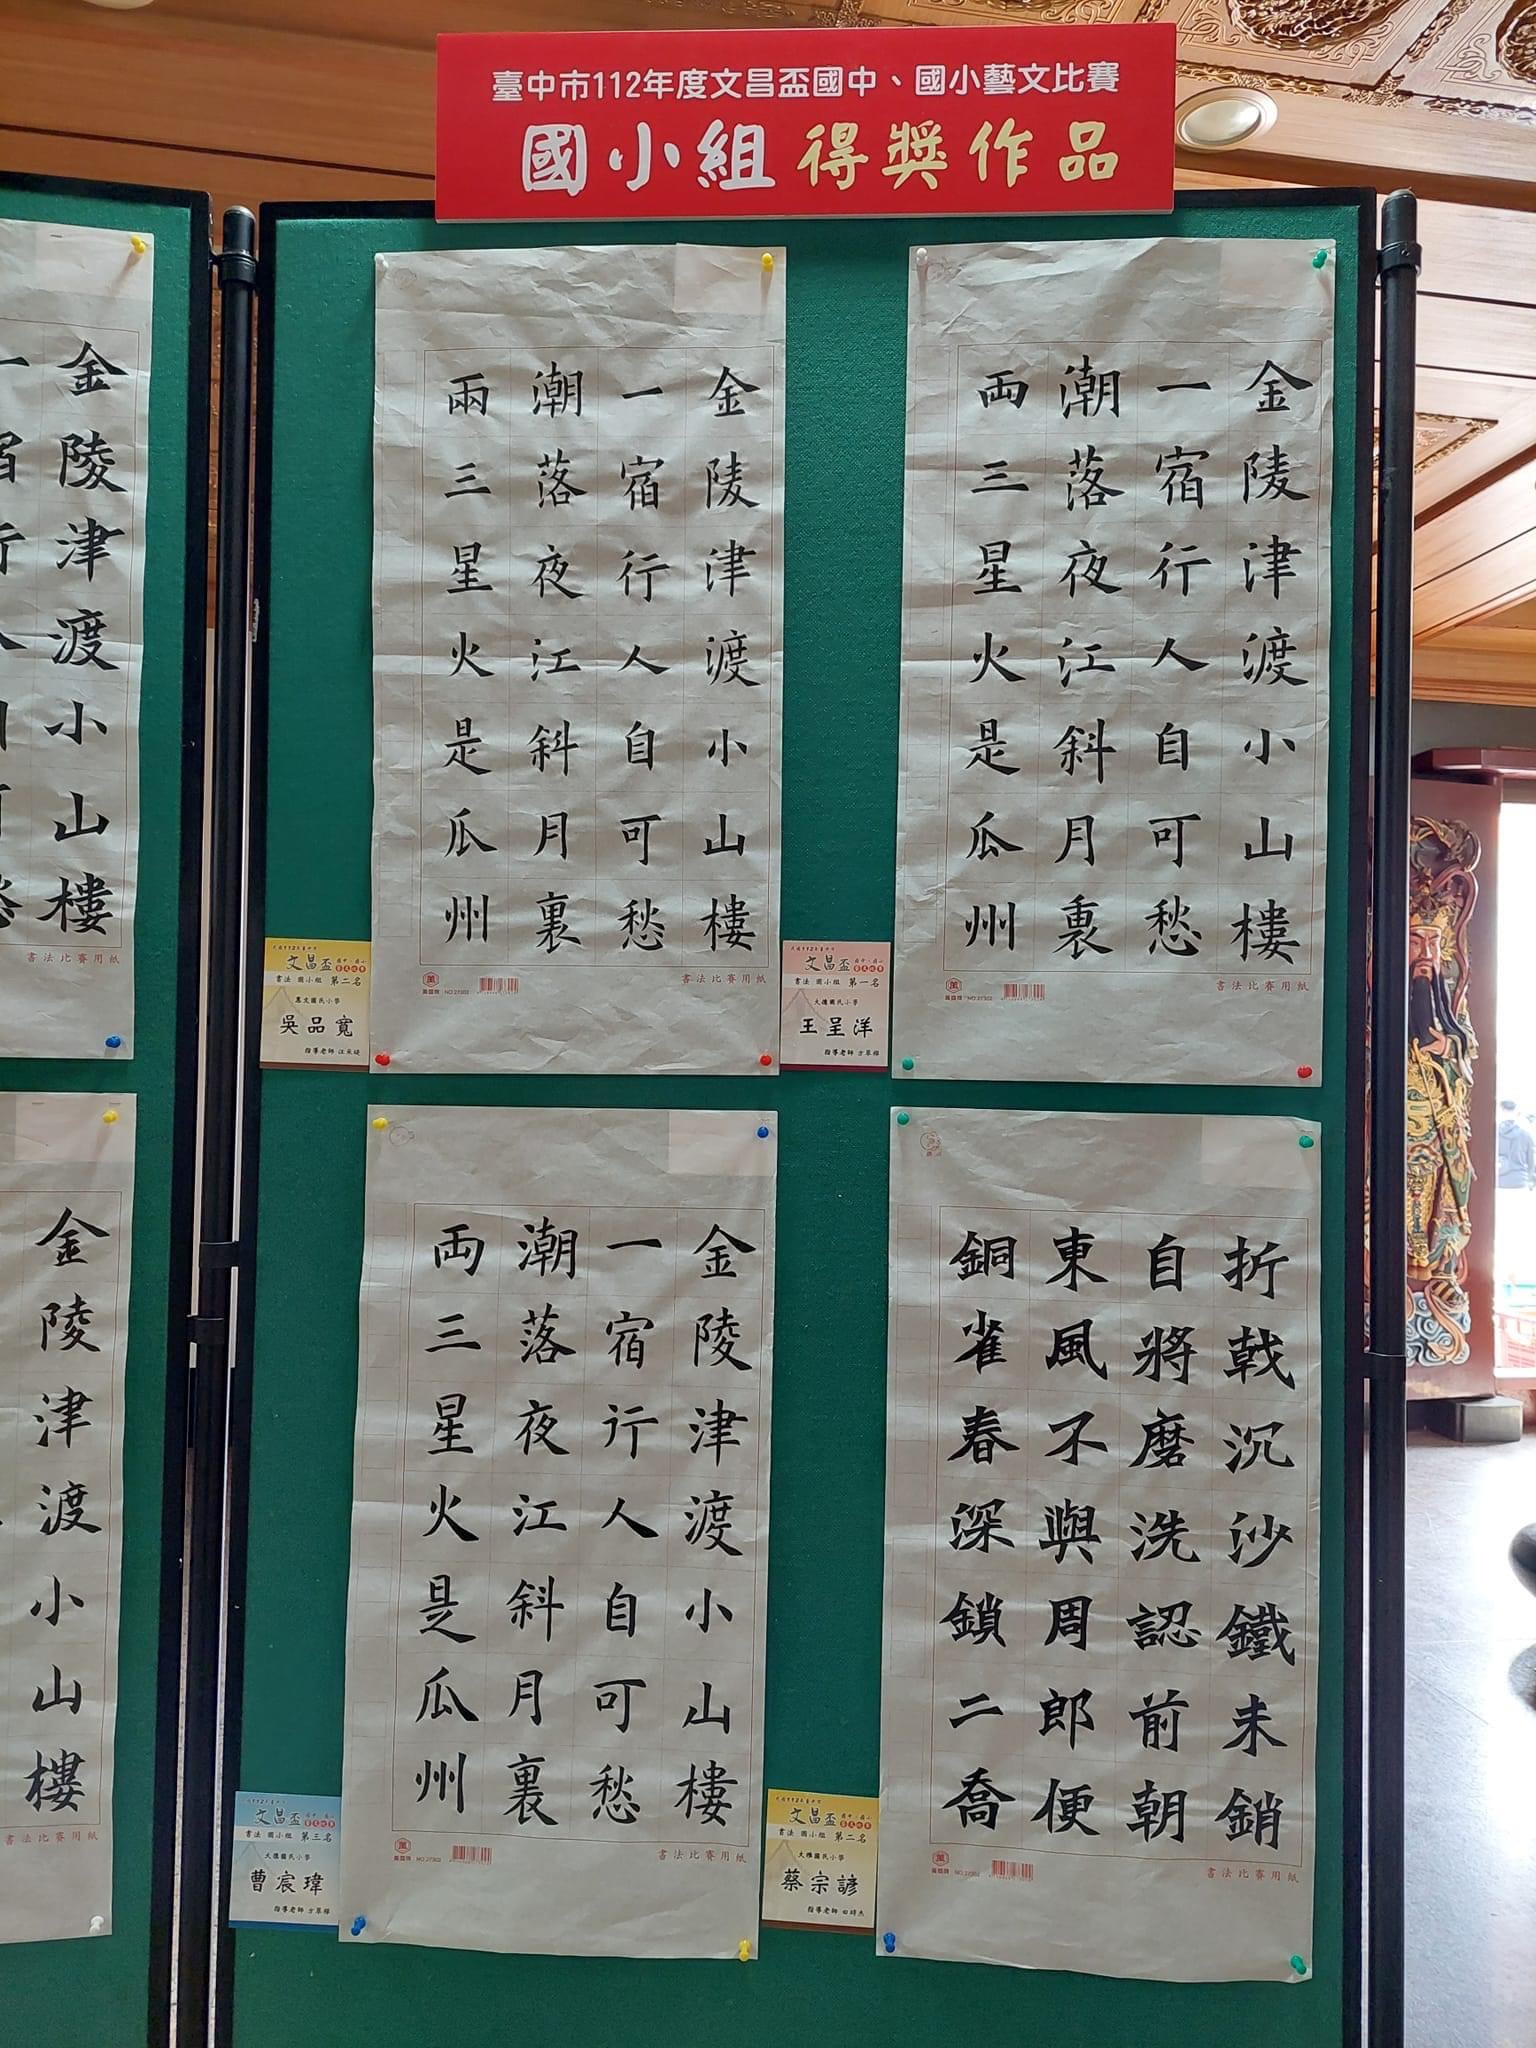 臺中市112年度文昌盃國中、國小藝文比賽
國小組得獎作品
金陵津渡小山樓
一宿行人自可愁
潮落夜江斜月裏
兩三星火是瓜州
書法比賽用紙
文昌盃
書法 國小組 第一名
王呈洋
金陵津渡小山樓
一宿行人自可愁
潮落夜江斜月裏
兩三星火是瓜州
書法比賽用紙
文昌盃
書法 國小組 第二名
惠文國民小學
吳品寬
折戟沉沙鐵未銷
自將磨洗認前朝
東風不與周郎便
銅雀春深鎖二喬
書法比賽用紙
文昌盃
書法 國小組 第二名
大雅國民小學
蔡宗諺
金陵津渡小山樓
一宿行人自可愁
潮落夜江斜月裏
兩三星火是瓜州
書法比賽用紙
文昌盃
書法 國小組 第三名
曹宸瑋
金陵津渡小山樓
書法比賽用紙
金陵津渡小山樓
書法比賽用紙